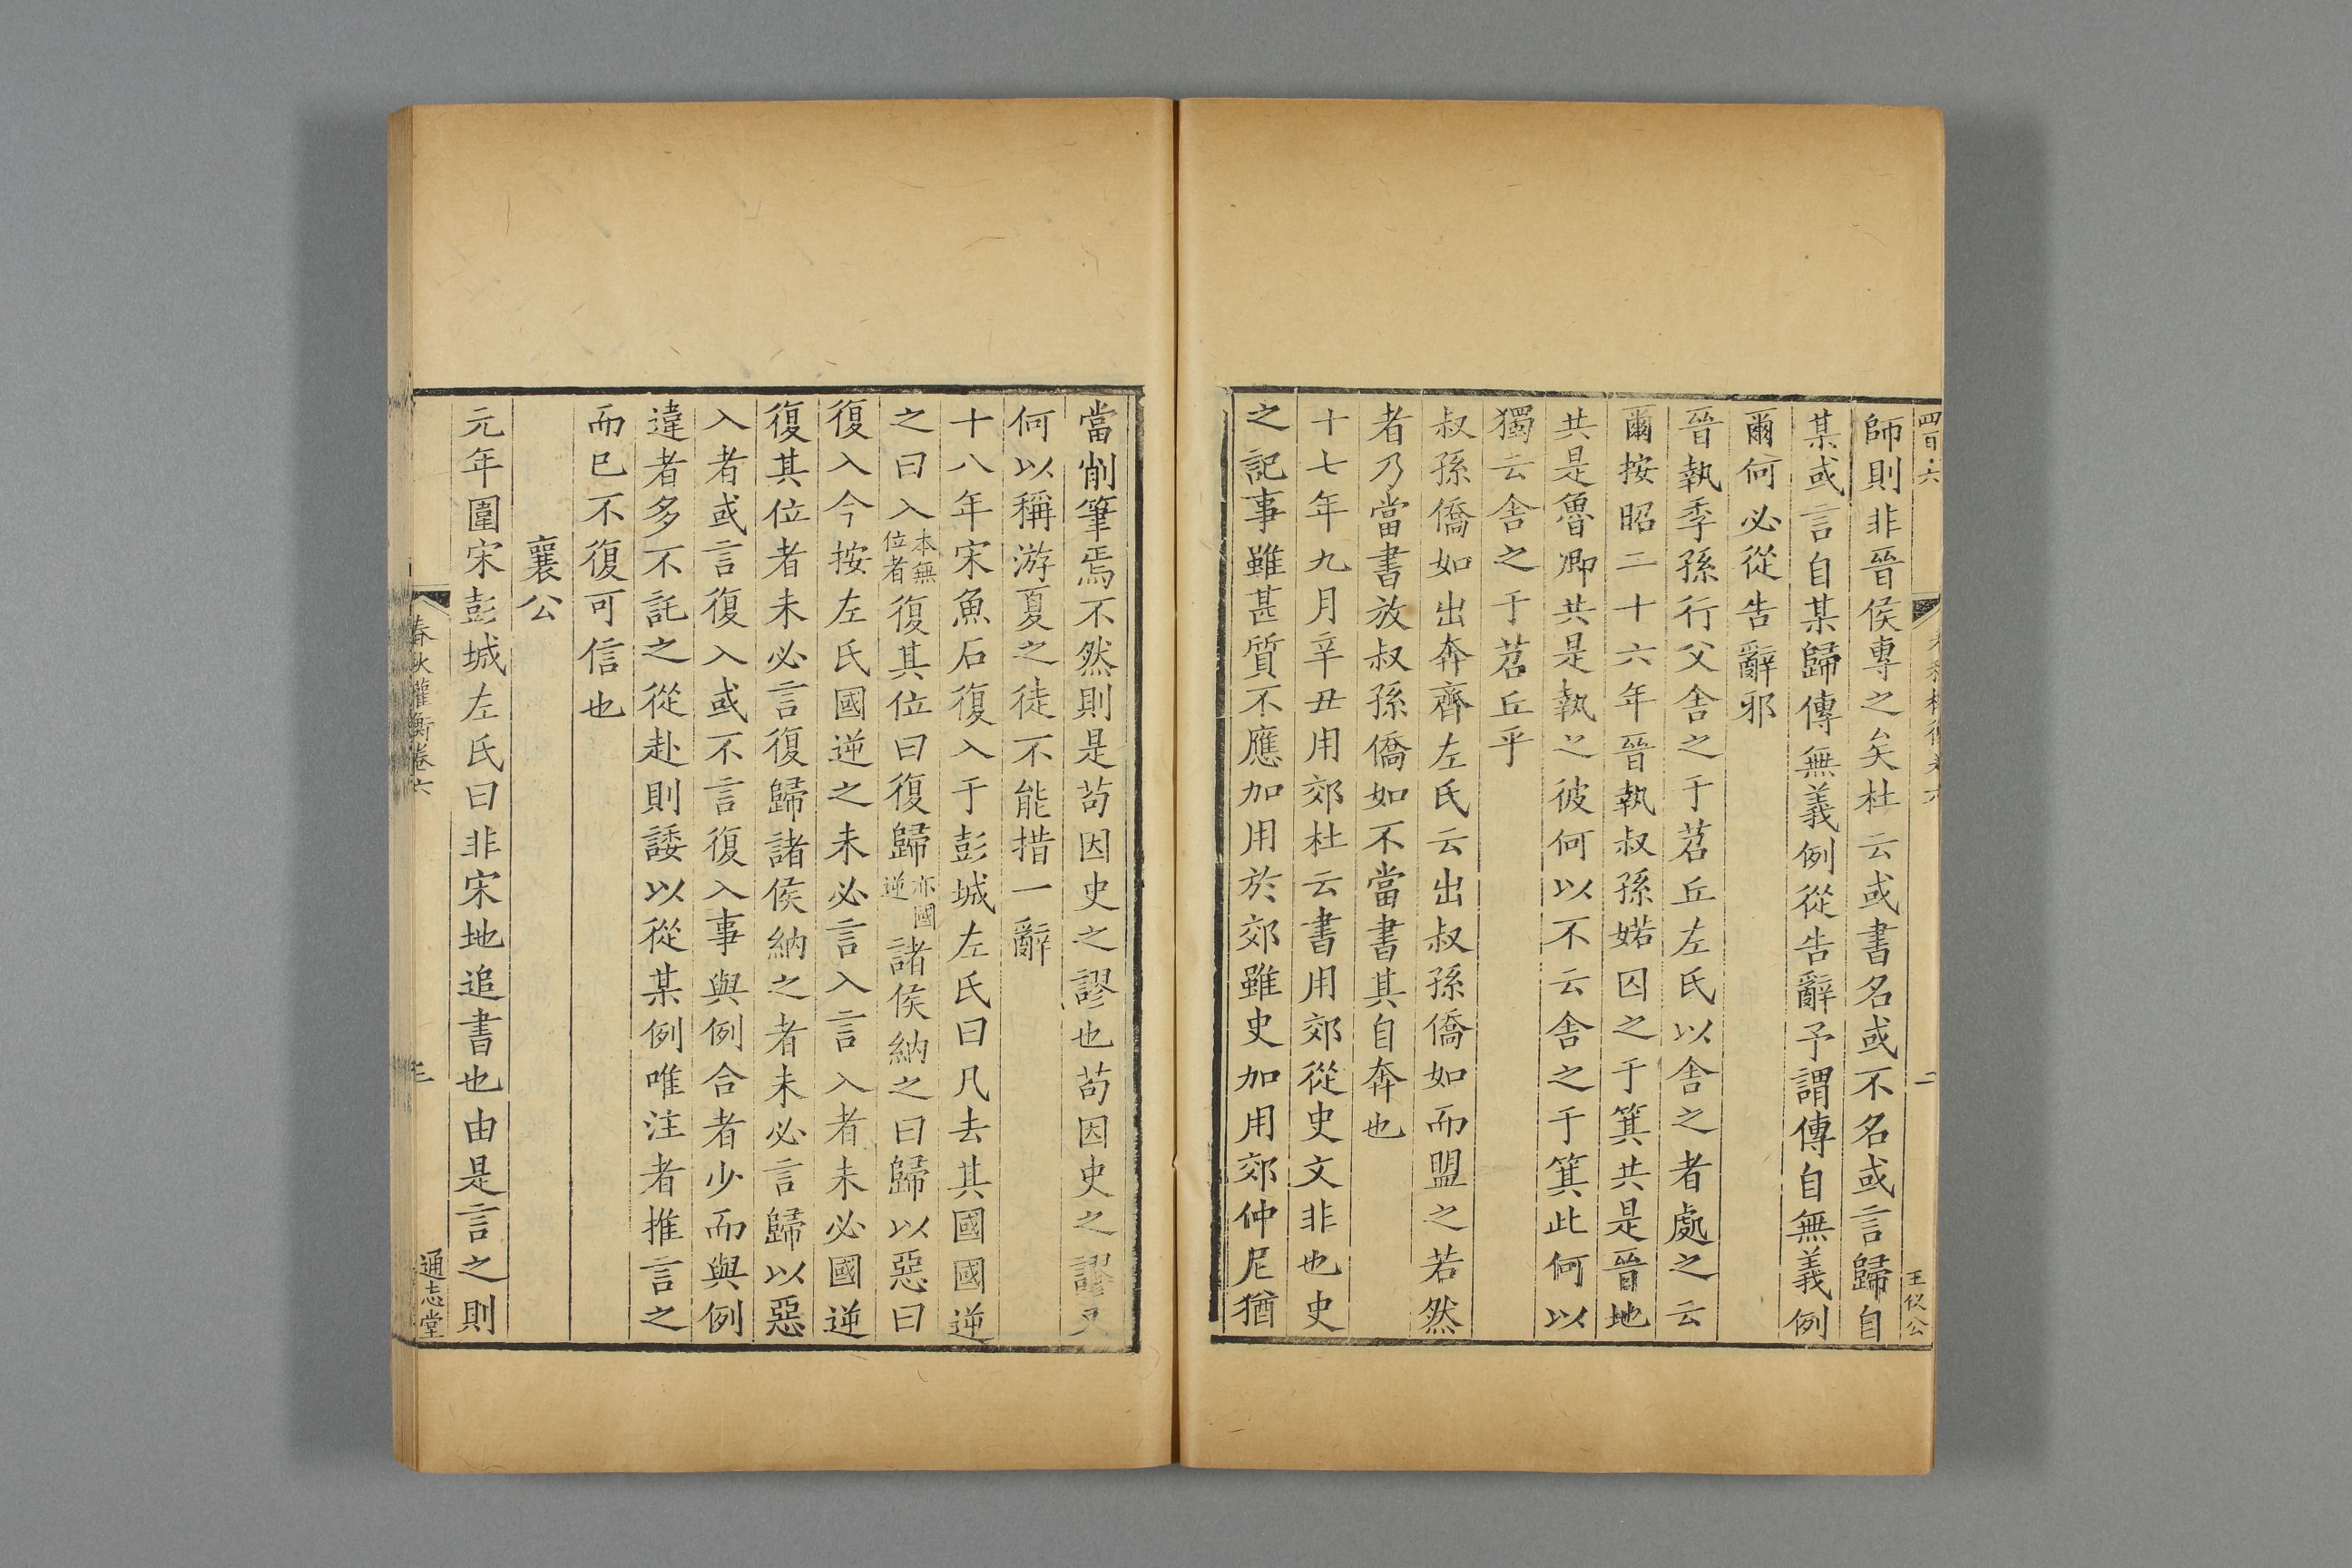 四百六
二
王伩公
師則非晉侯專之矣杜云或書名或不名或言歸自
某或言自某歸傳無義例從告辭予謂傳自無義例
爾何必從告辭邪
晉執季孫行父舍之于苕丘左氏以舍之者處之云
爾按昭二十六年晉執叔孫婼囚之于箕共是晉地
共是魯卿共是執之彼何以不云舍之于箕此何以
獨云舍之于苕丘乎
叔孫僑如出奔齊左氏云出叔孫僑如而盟之若然
者乃當書放叔孫僑如不當書其自奔也
十七年九月辛丑用郊杜云書用郊從史文非也史
之記事雖甚質不應加用於郊雖史加用郊仲尼猶
當削筆焉不然則是苟因史之謬也苟因史之謬又
何以稱游夏之徒不能措一辭
十八年宋魚石復入于彭城左氏曰凡去其國國逆
之曰入本無位者復其位曰復歸亦國逆諸侯納之曰歸以惡曰
復入今按左氏國逆之未必言入言入者未必國逆
復其位者未必言復歸諸侯納之者未必言歸以惡
入者或言復入或不言復入事與例合者少而與例
違者多不託之從赴則諉以從某例唯注者推言之
而已不復可信也
襄公
元年圍宋彭城左氏曰非宋地追書也由是言之則
春秋權衡卷六
三
通志堂